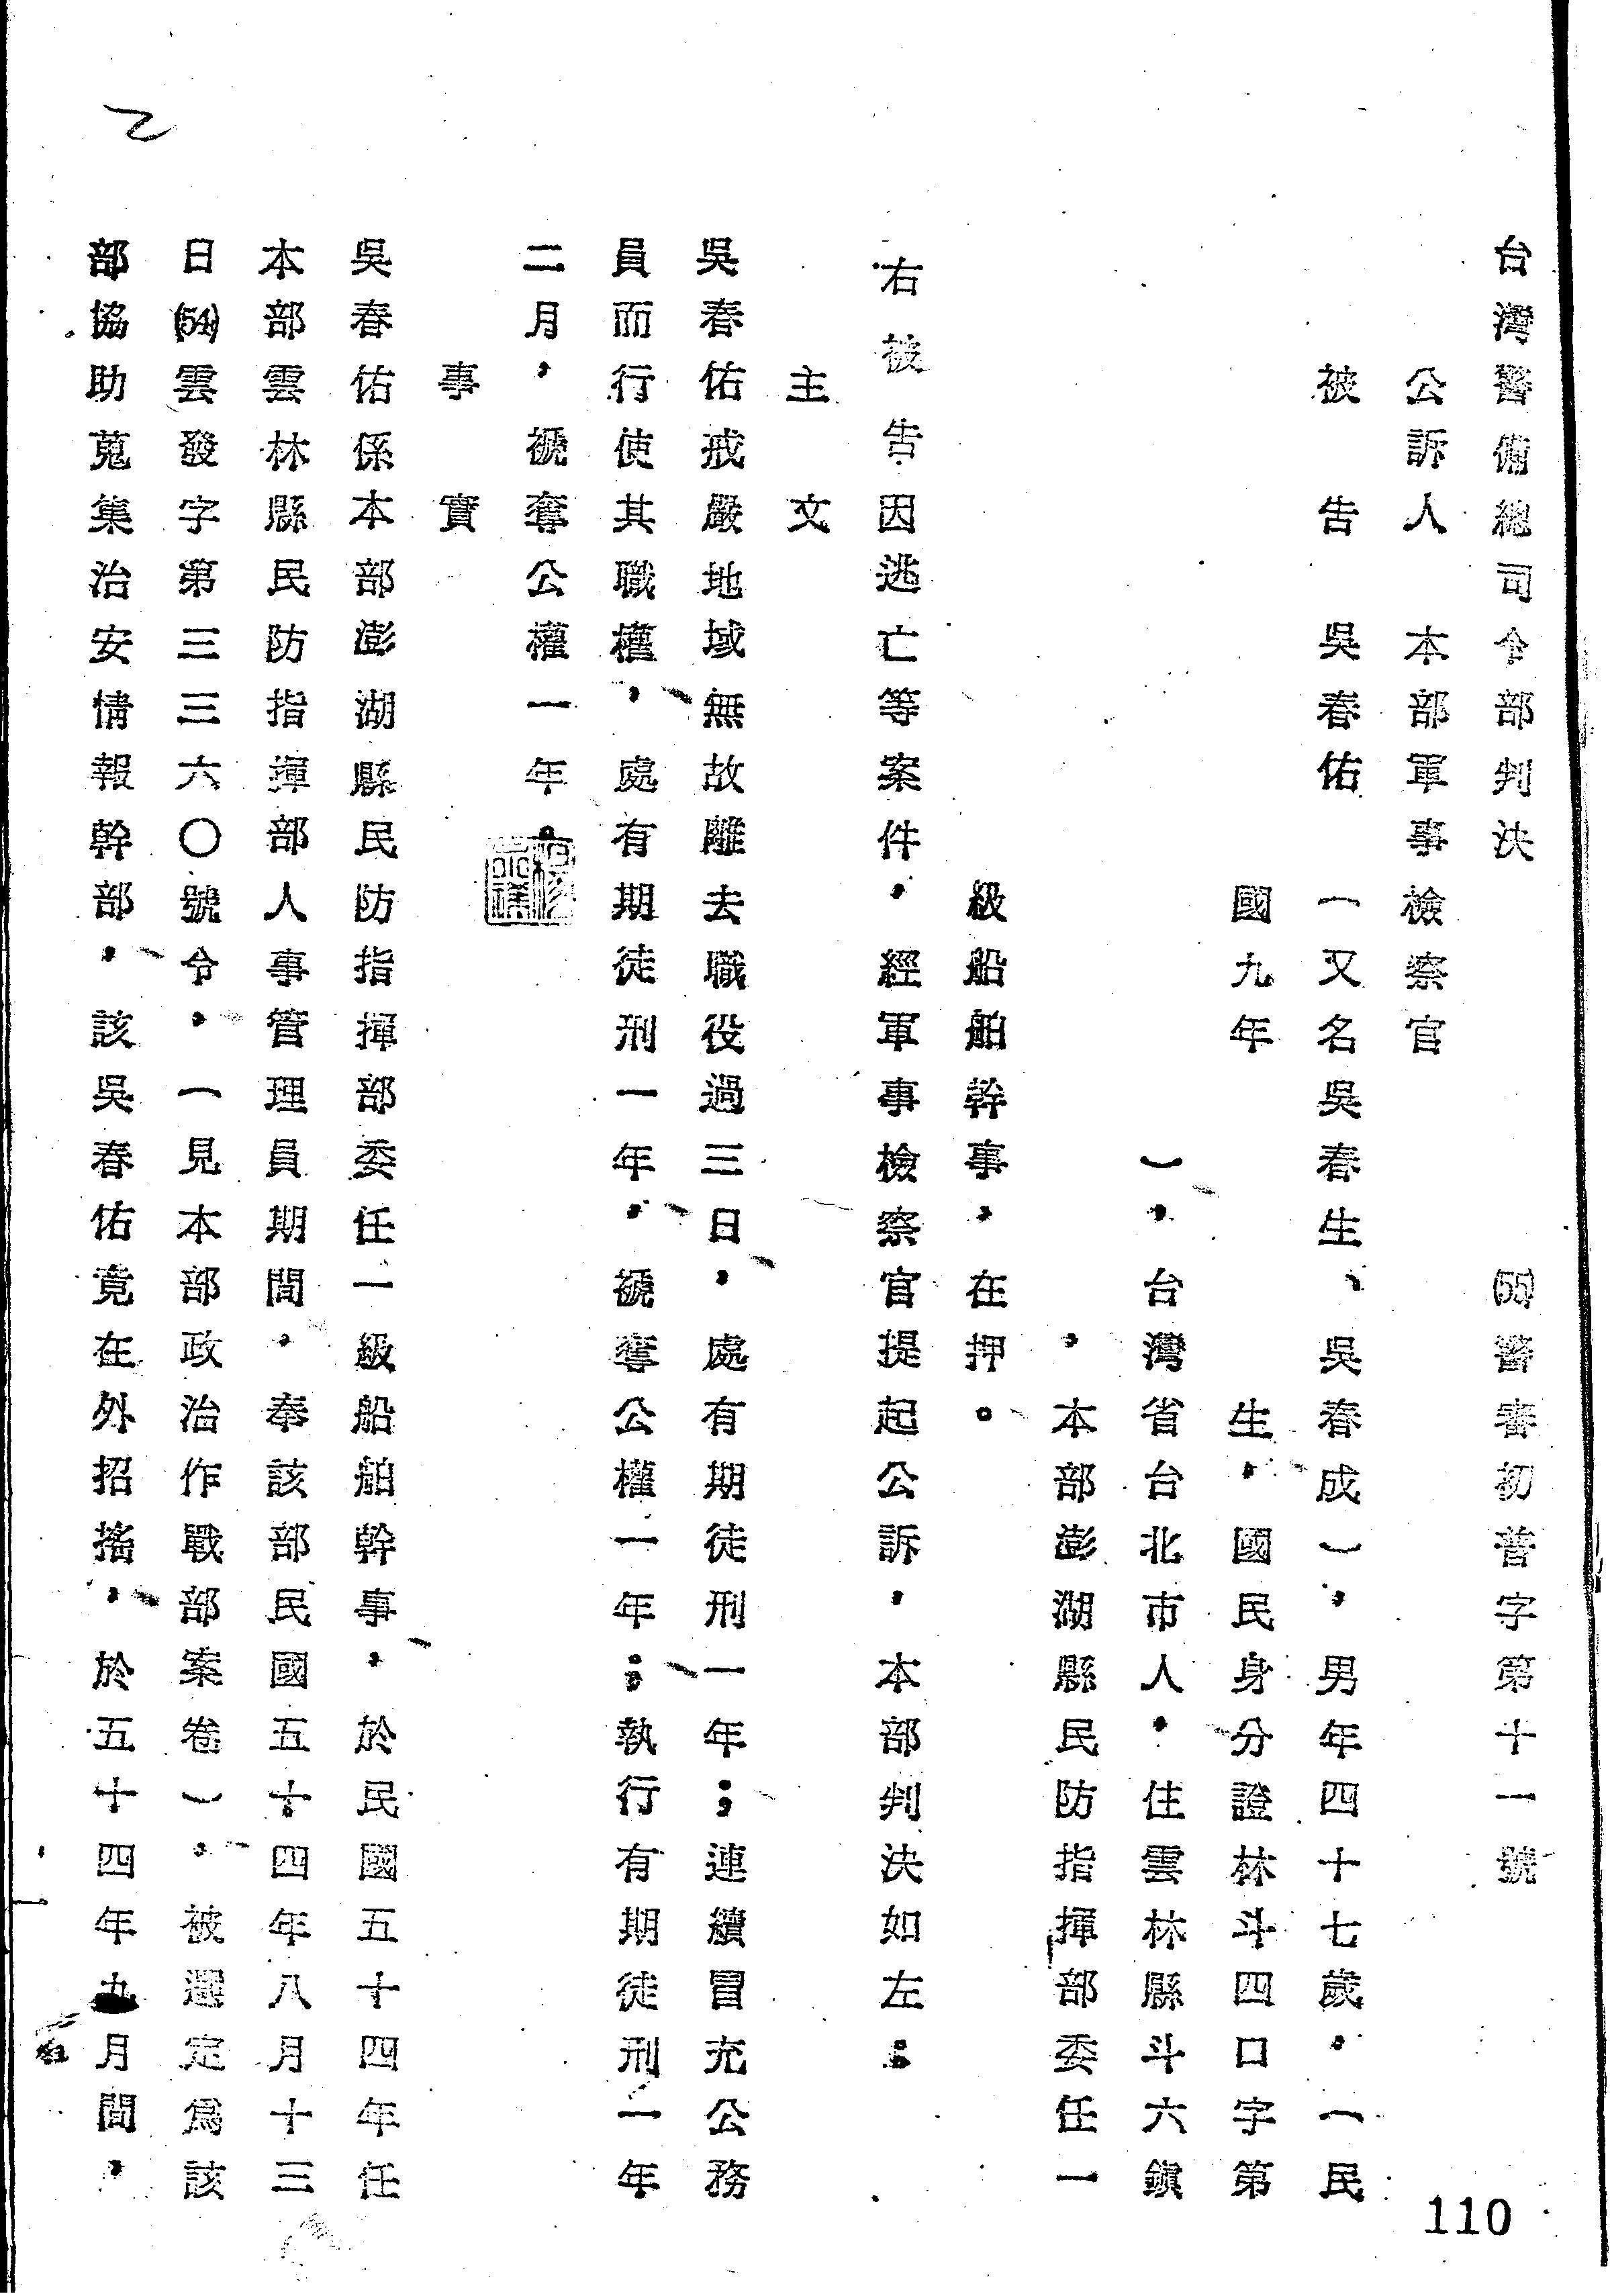 台灣警備總司令部判決 (55)警審初普字第十一號
公訴人 本部軍事檢察官
被告 吳春佑 (又名吳春生、吳春成),男年四十七歲,(民
國九年 生,國民身分證林斗四口字第
),台灣省台北市人,住雲林縣斗六鎮
,本部澎湖縣民防指揮部委任一
級船舶幹事,在押。
右被告因逃亡等案件,經軍事檢察官提起公訴,本部判決如左:
主文
吳春佑戒嚴地域無故離去職役過三日,處有期徒刑一年;連續冒充公務
員而行使其職權,處有期徒刑一年,褫奪公權一年;執行有期徒刑一年
二月,褫奪公權一年。
事實
吳春佑係本部澎湖縣民防指揮部委任一級船舶幹事,於民國五十四年任
本部雲林縣民防指揮部人事管理員期間,奉該部民國五十四年八月十三
日(54)雲發字第三三六〇號令,(見本部政治作戰部案卷),被選定為該
部協助蒐集治安情報幹部,該吳春佑竟在外招搖,於五十四年九月間,
110